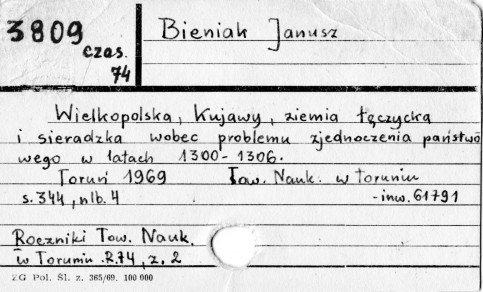 3809
czas.
74
Bieniak Janusz
Wielkopolska, Kujawy, ziemia łęczycka
i sieradzka wobec problemu zjednoczenia państwo
wego w latach 1300-1306.
Toruń 1969 Tow. Nauk. w Toruniu
s. 344, nlb. 4 - inw. 61791
Roczniki Tow. Nauk.
w Toruniu R. 74, z. 2
ZG Pol. Śl. z. 365/69. 100 000